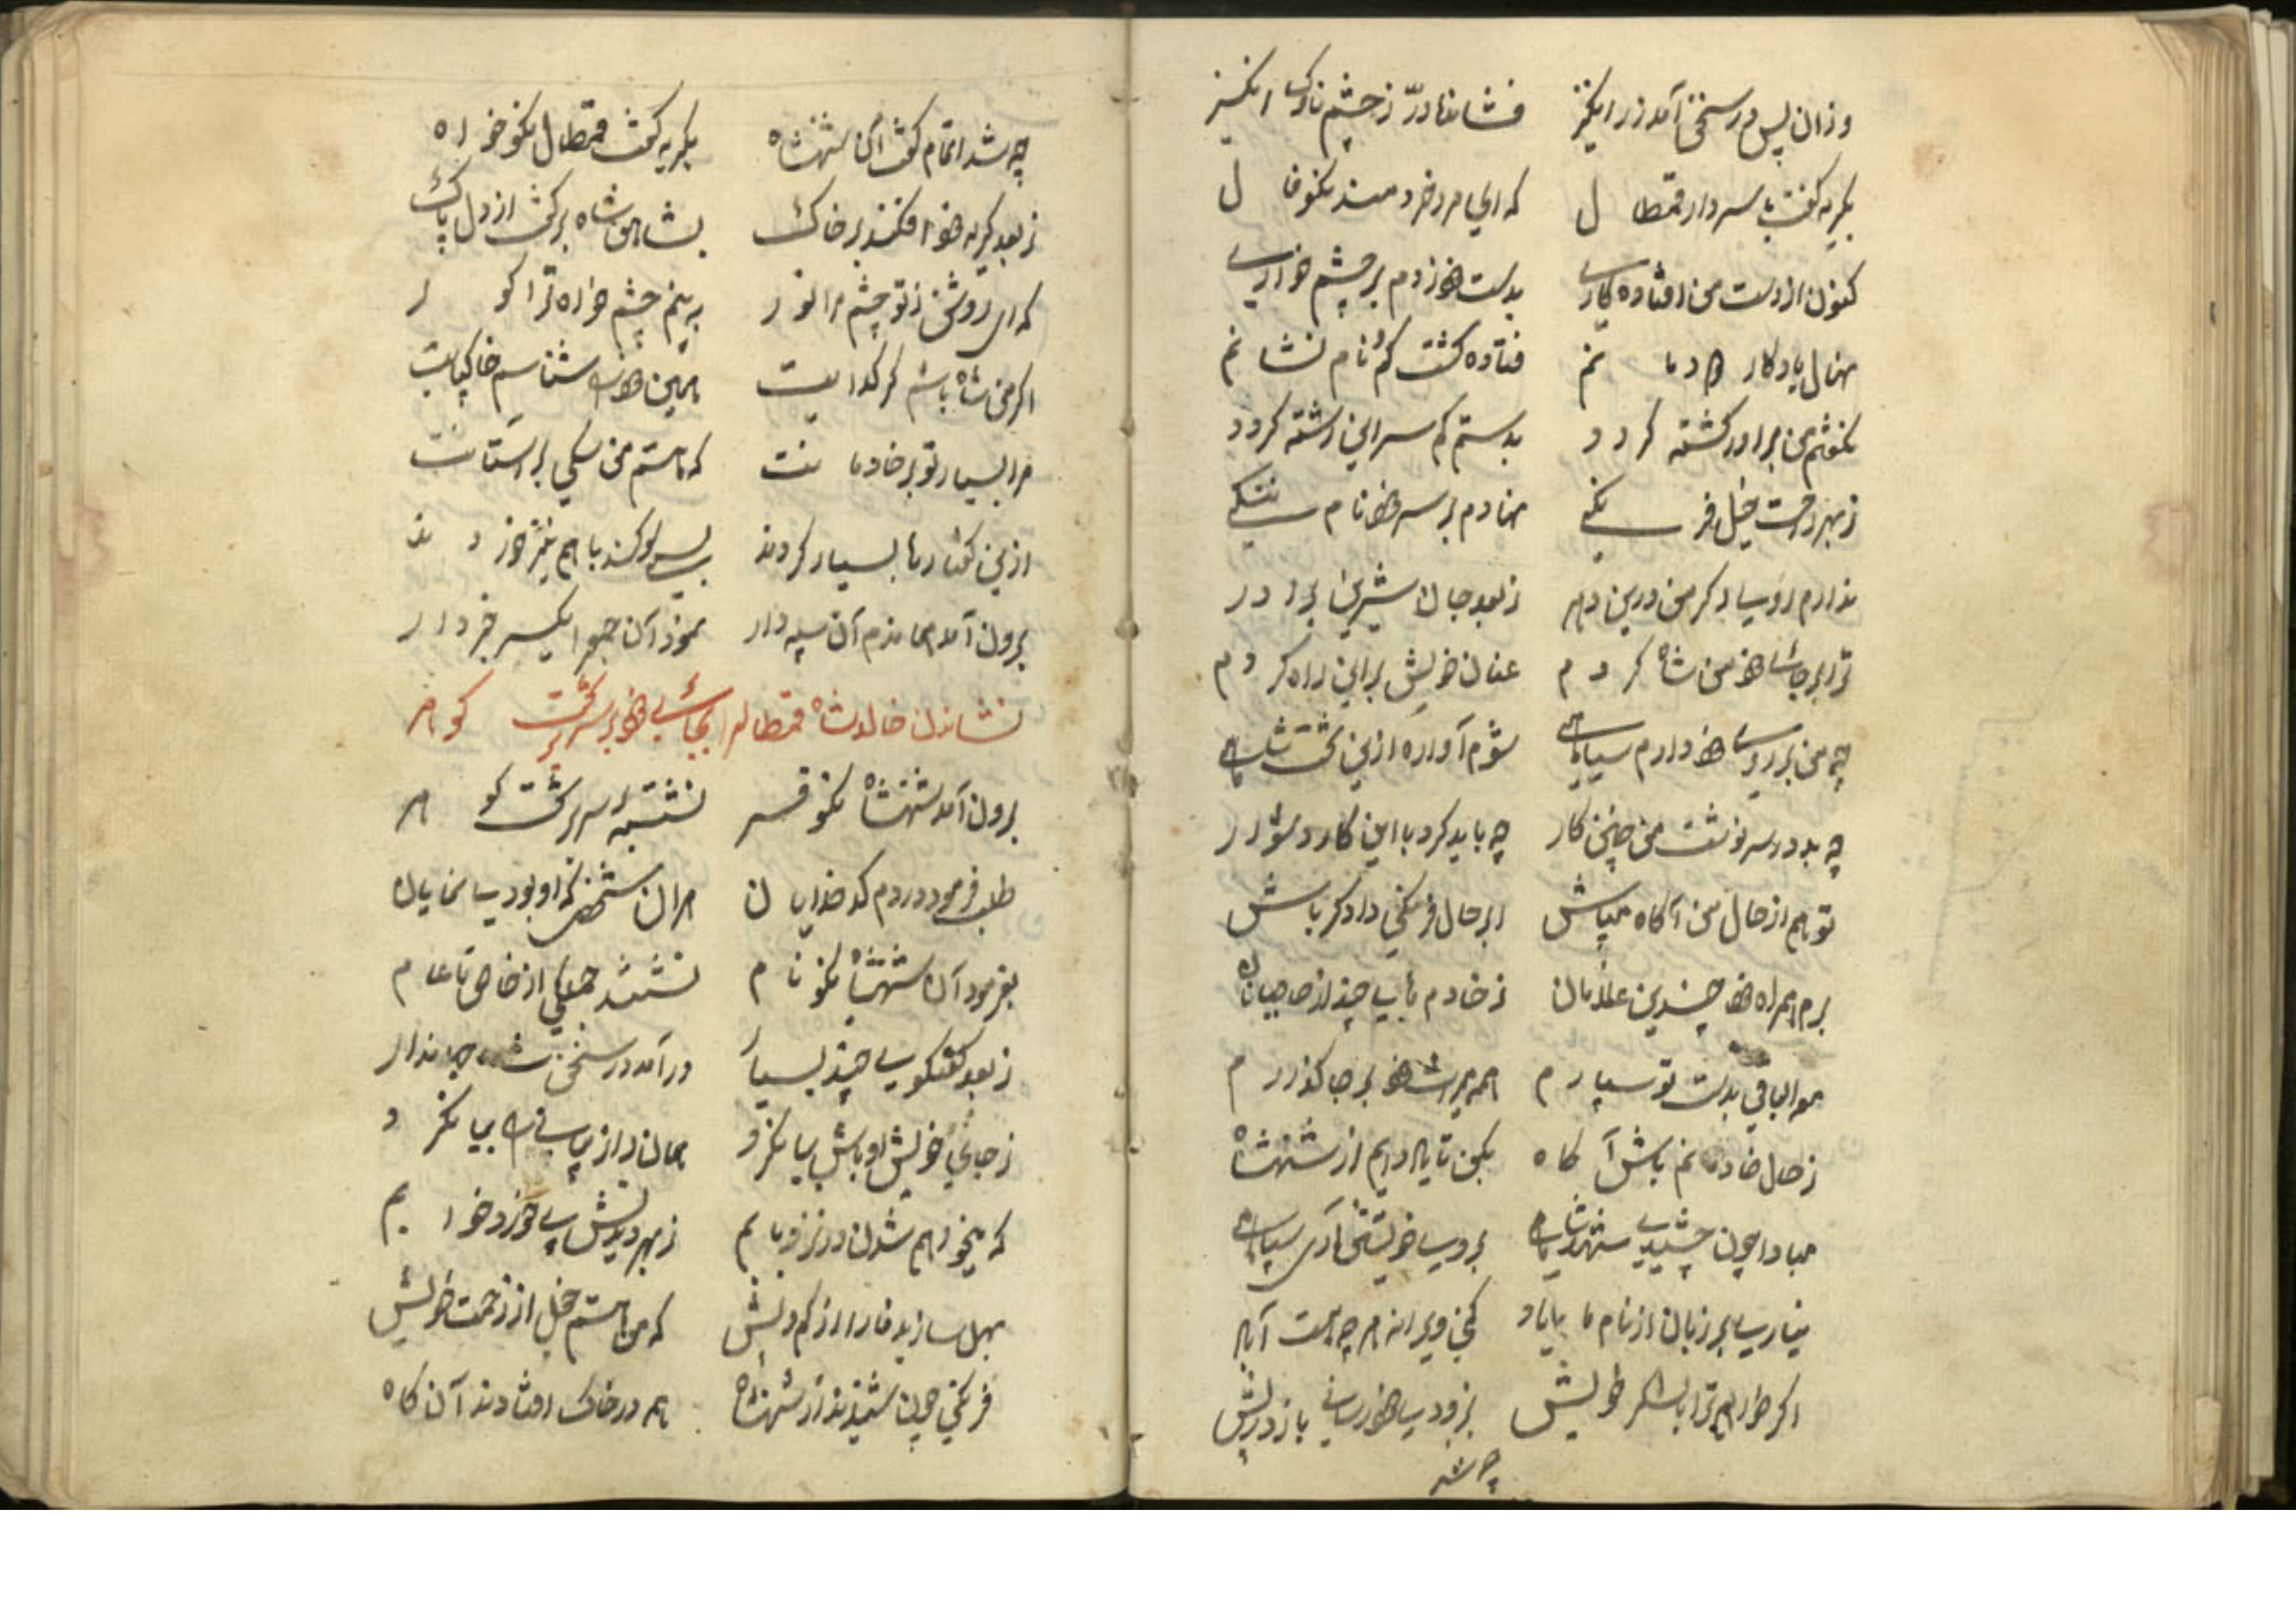 وزان پس در سخن آمد زر انگیز فشاند در ز چشم ناوک انگیز
بگریه گفت با سردار قمطال که ای مرد خردمند نکوفال
کنون از دست من افتاده کاری بدست خود زدم بر چشم خود خاری
نهال یادکار دودمانم فتاده کشت کم نام نشانم
نکفتم من برادر کشته کردد بدستم کم سر این رشته کردد
ز بهر رحمت خیل فرنگی نهادم بر سر خود نام ننگی
ندارم روسیا دیکر من درین دهر ز بعد جان شیرین برادر
ترا بر جای خود من شاه کردم عنان خویش بر این راه کردم
چه من بر روی خود دارم سیاهی شوم آواره ازین تخت شاهی
چه بد در سرنوشت من چنین کار چه باید کرد با این کار دشوار
تو هم از حال من آکاه میباش ابر حال فرنکی دادکر باش
برم همراه خود چندین غلامان ز خادم تا بیاید چند از صاحبان
مع الباقی بدست تو سپارم همه میراث خود بر جا کذارم
ز حال خادمانم باش آکاه بکن تا یاد ایم از شهنشاه
مبادا چون چشیدی شهد شاهی بروی خویشتن آری سیاهی
نیاری بر زبان از نام ما یاد کنی ویرانه هر چه هست آباد
اکر خواهم ترا با لشکر خویش بزودی خود رسانی باز در پیش
چه شد
چه شد اتمام کفت آن شهنشاه بگریه کفت قمطال نکوخواه
ز بعد کریه خود افکند بر خاک بشاهنشاه بر کفت از دل پاک
که ای روشن ز تو چشم مرا نور به بینم چشم خواه ترا کور
اکر من شاه باشم کر کدایت همین خود را شناسم خاکپایت
مرا بسپار تو بر خادمانت که هستم من سکی بر آستانت
ازین کفتارها بسیار کردند بسی سوکند با هم نیز خوردند
برون آمد همان دم آن سپه دار نمود آن جمع را یکسر خبردار
نشاندن خالدشاه قمطال را بجای خود بر سر تخت کوهر
برون آمد شهنشاه نکوفر نشسته بر سر تخت کوهر
طلب فرمود در دم کدخدایان هر آن شخصی که او بود بیانمایان
بفرمود آن شهنشاه نکونام نشستند جملکی از خاص تا عام
ز بعد کفتکوی چند بسیار در آمد در سخن شاه جهاندار
ز جای خویش او باش بیانکرد همان راز پنهانی را بیان کرد
که میخواهم شدن در نزد بابم ز بهر دیدنش بی خورد و خوابم
بهل سازید ما را از کم و بیش که من هستم خجل از زحمت خویش
فرنکی چون شنیدند از شهنشاه همه در خاک افتادند آن کاه